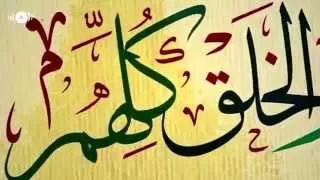 الخلق كلهم